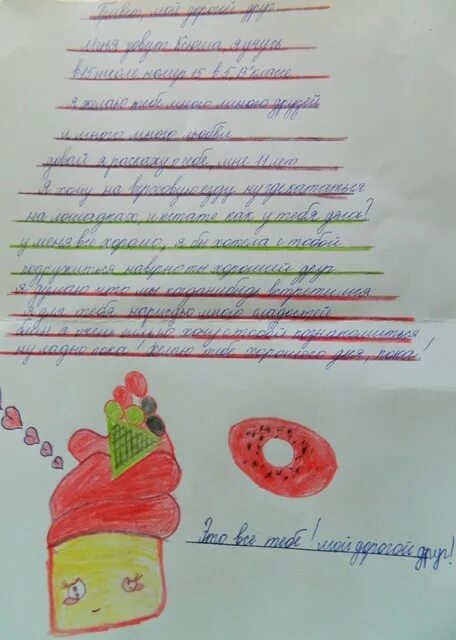 Привет, мой дорогой друг
меня зовут Ксюша, я учусь
в 15 школе номер 15 в 5 "В" классе
я желаю тебе много много друзей
и много много любви
давай я раскажу о себе, мне 11 лет
Я хожу на верховую езду ну где кататься
на лошадках, и кстате как у тебя дела?
у меня все хорошо, я бы хотела с тобой
подружиться наверно ты хороший друг
я думаю что мы когда нибудь встретимся
я для тебя нарисую много сладостей
я очень хочу с тобой познакомиться
ну ладно пока! желаю тебе хорошего дня, пока!
Это всё тебе! мой дорогой друг!